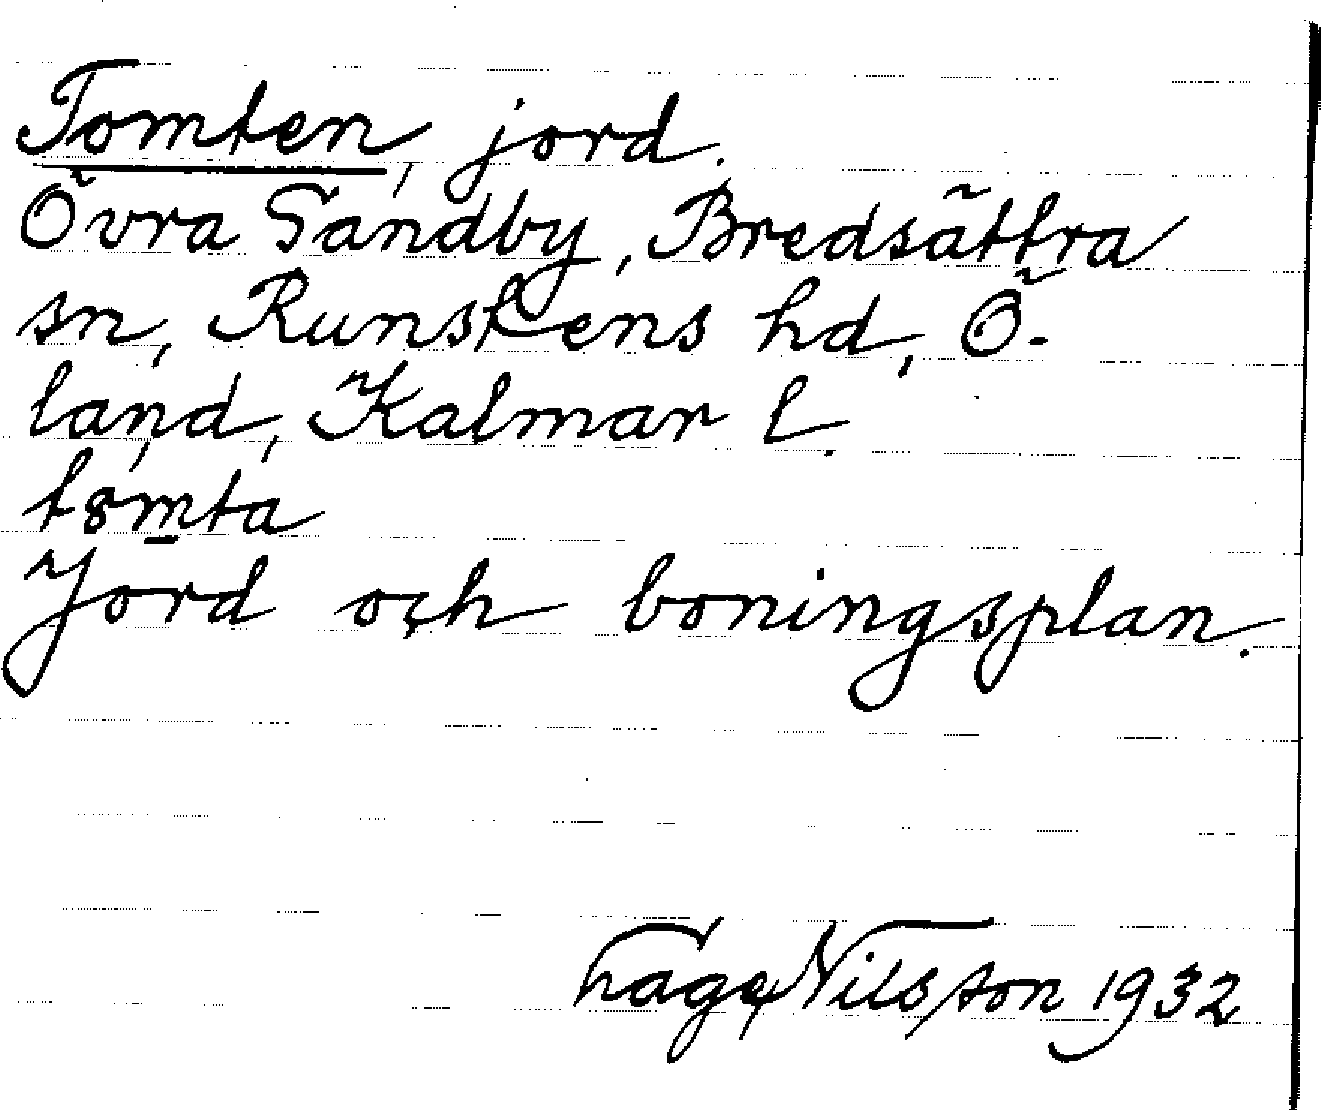 Tomten, jord.
Övra Sandby, Bredsättra
sn, Runstens hd, Ö-
land, Kalmar l.
tȣmta
Jord och boningsplan.
Hage Nilsson 1932